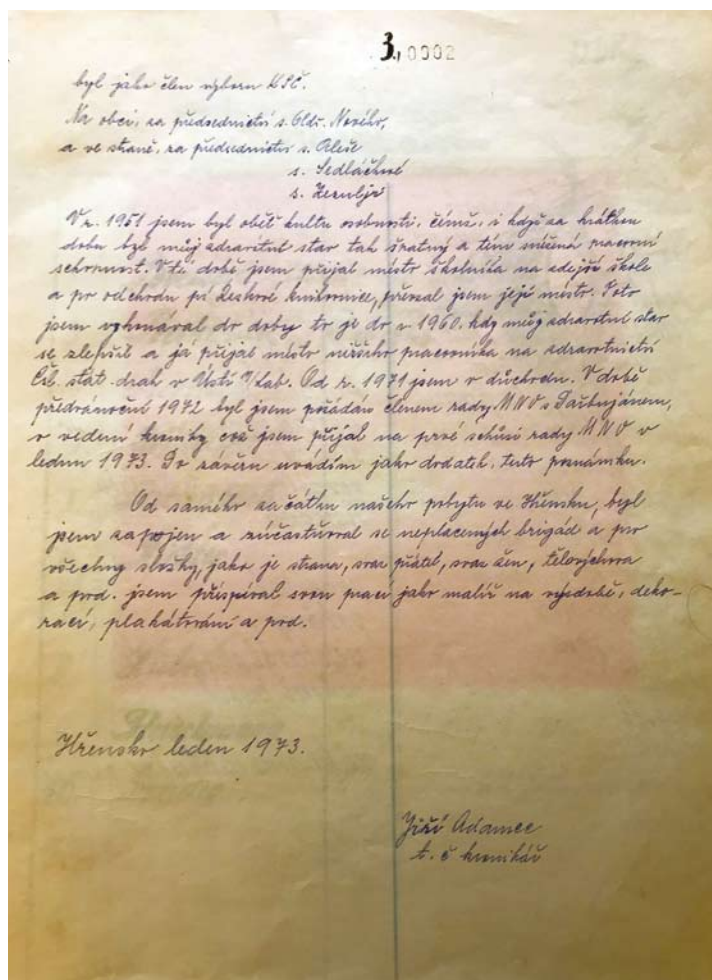 3., 0002
byl jako člen výboru KSČ.
Na obci, za předsednictví s. Oldř. Nového,
a ve straně, za předsednictví s. Aleše
s. Sedláčkové
s.
V r. 1951 jsem byl obětí kultu osobnosti, čímž, i když za krátkou
dobu byl můj zdravotní stav tak špatný a tím snížená pracovní
schopnost. V té době jsem přijal místo školníka na zdejší škole
a po odchodu pí knihovnice, převzal jsem její místo. Toto
jsem vykonával do doby to je do r. 1960, kdy můj zdravotní stav
se zlepšil a já přijal místo nižšího pracovníka na zdravotnictví
Čsl. stát. drah v Ústí n/Lab. Od r. 1971 jsem v důchodu. V době
předvánoční 1972 byl jsem požádán členem rady MNV s.
o vedení kroniky což jsem přijal na prvé schůzi rady MNV v
lednu 1973. Do závěru uvádím jako dodatek, tuto poznámku.
Od samého začátku našeho pobytu ve Hřensku, byl
jsem zapojen a zúčastňoval se neplacených brigád a pro
všechny složky, jako je strana, svaz přátel, svaz žen, tělovýchova
a pod. jsem přispíval svou prací jako malíř na výzdobě, deko-
raci, plakátování a pod.
Hřensko leden 1973.
Jiří Adamec
t. č kronikář